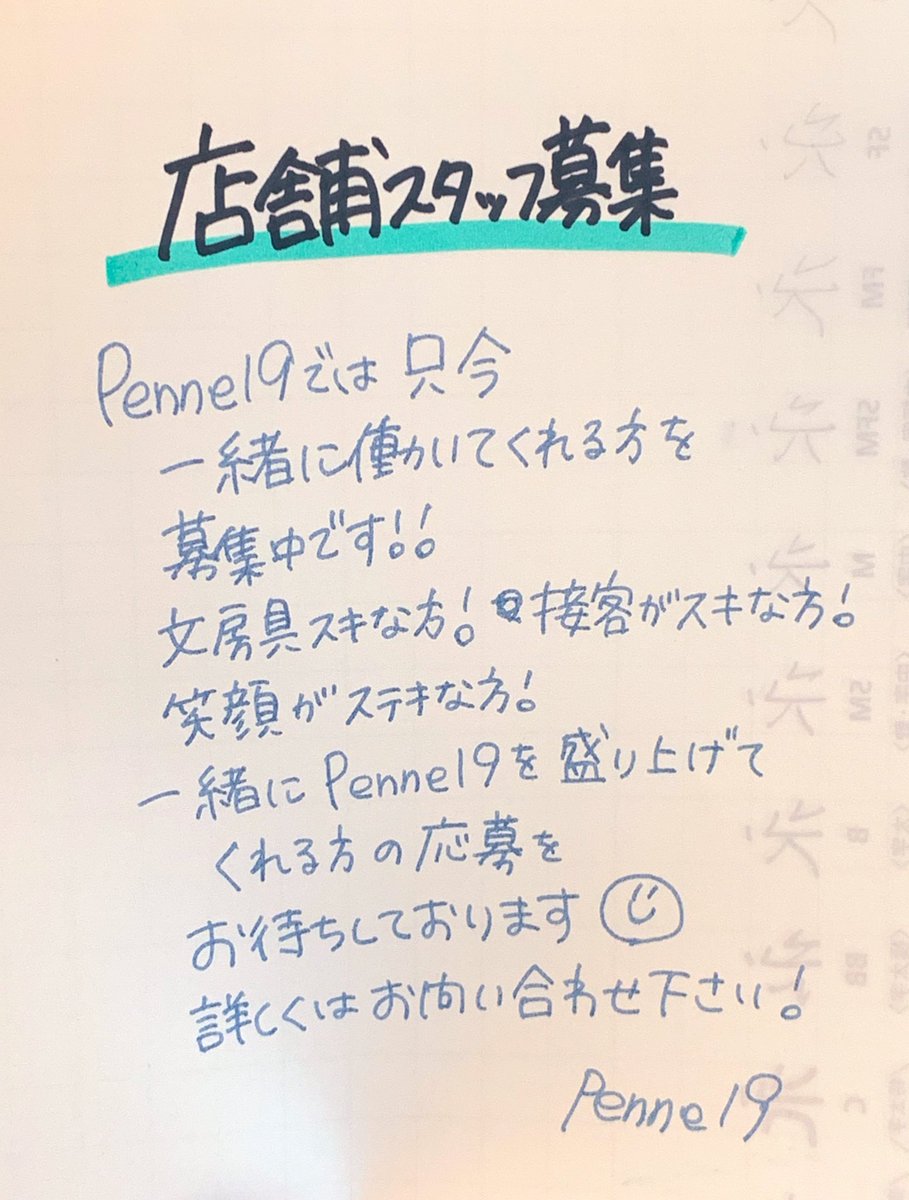 店舗スタッフ募集
Penne19では只今
一緒に働いてくれる方を
募集中です!!
文房具スキな方! 接客がスキな方!
笑顔がステキな方!
一緒にPenne19を盛り上げて
くれる方の応募を
お待ちしております
詳しくはお問い合わせ下さい!
Penne19
SF
FM
SFM
M
SM
B
BB
C